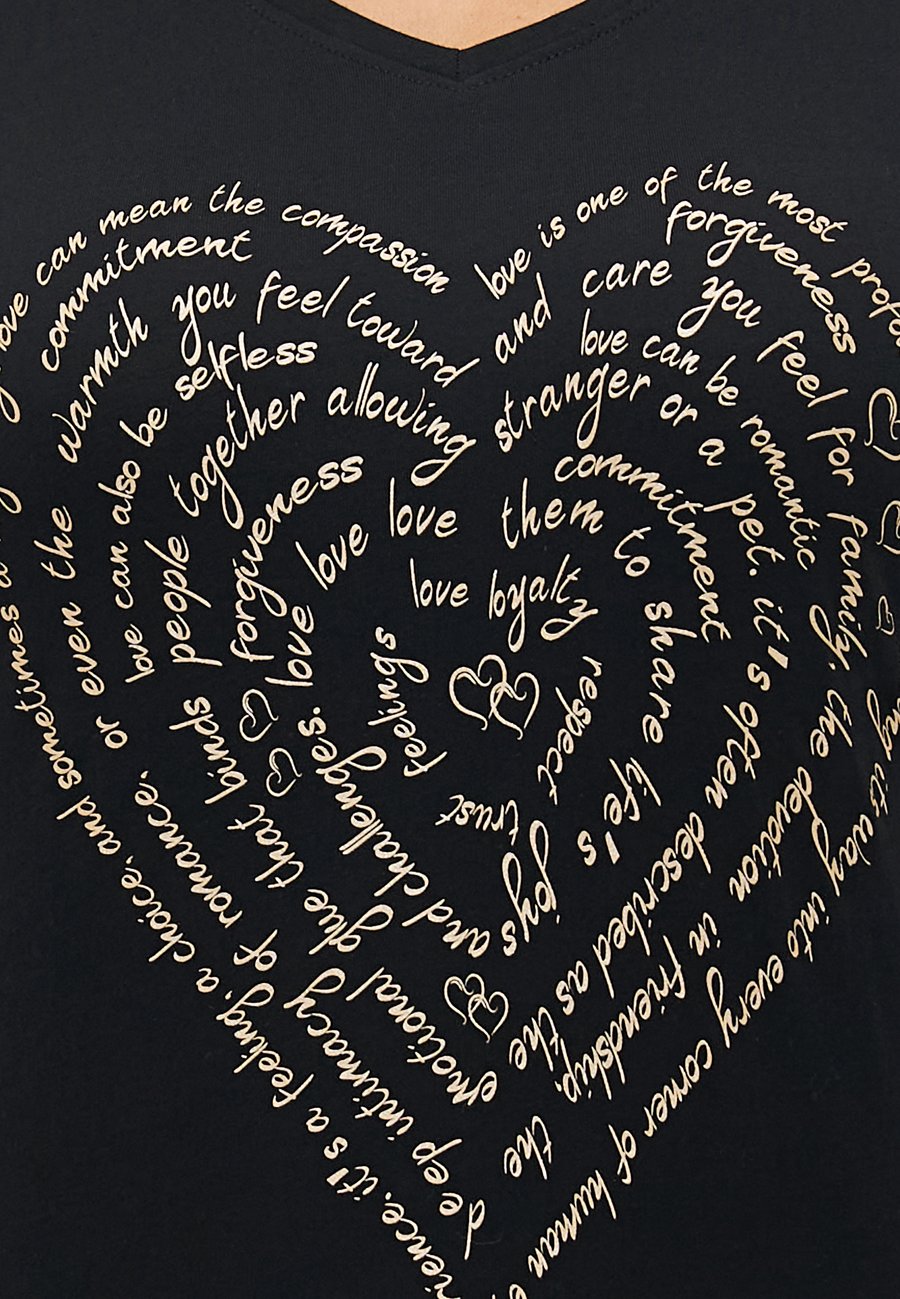 love can mean the compassion
love is one of the most
into every corner of human
it's a feeling, a choice, and sometimes a
commitment
forgiveness
warmth you feel toward
and care you feel for family, the devotion in friendship,
the deep intimacy of romance, or even the
love can also be selfless
love can be romantic
people together allowing
stranger or a pet. it's often described as the emotional glue that binds
forgiveness
commitment
love love love them to share life's joys and challenges.
love loyalty
respect
trust
feelings